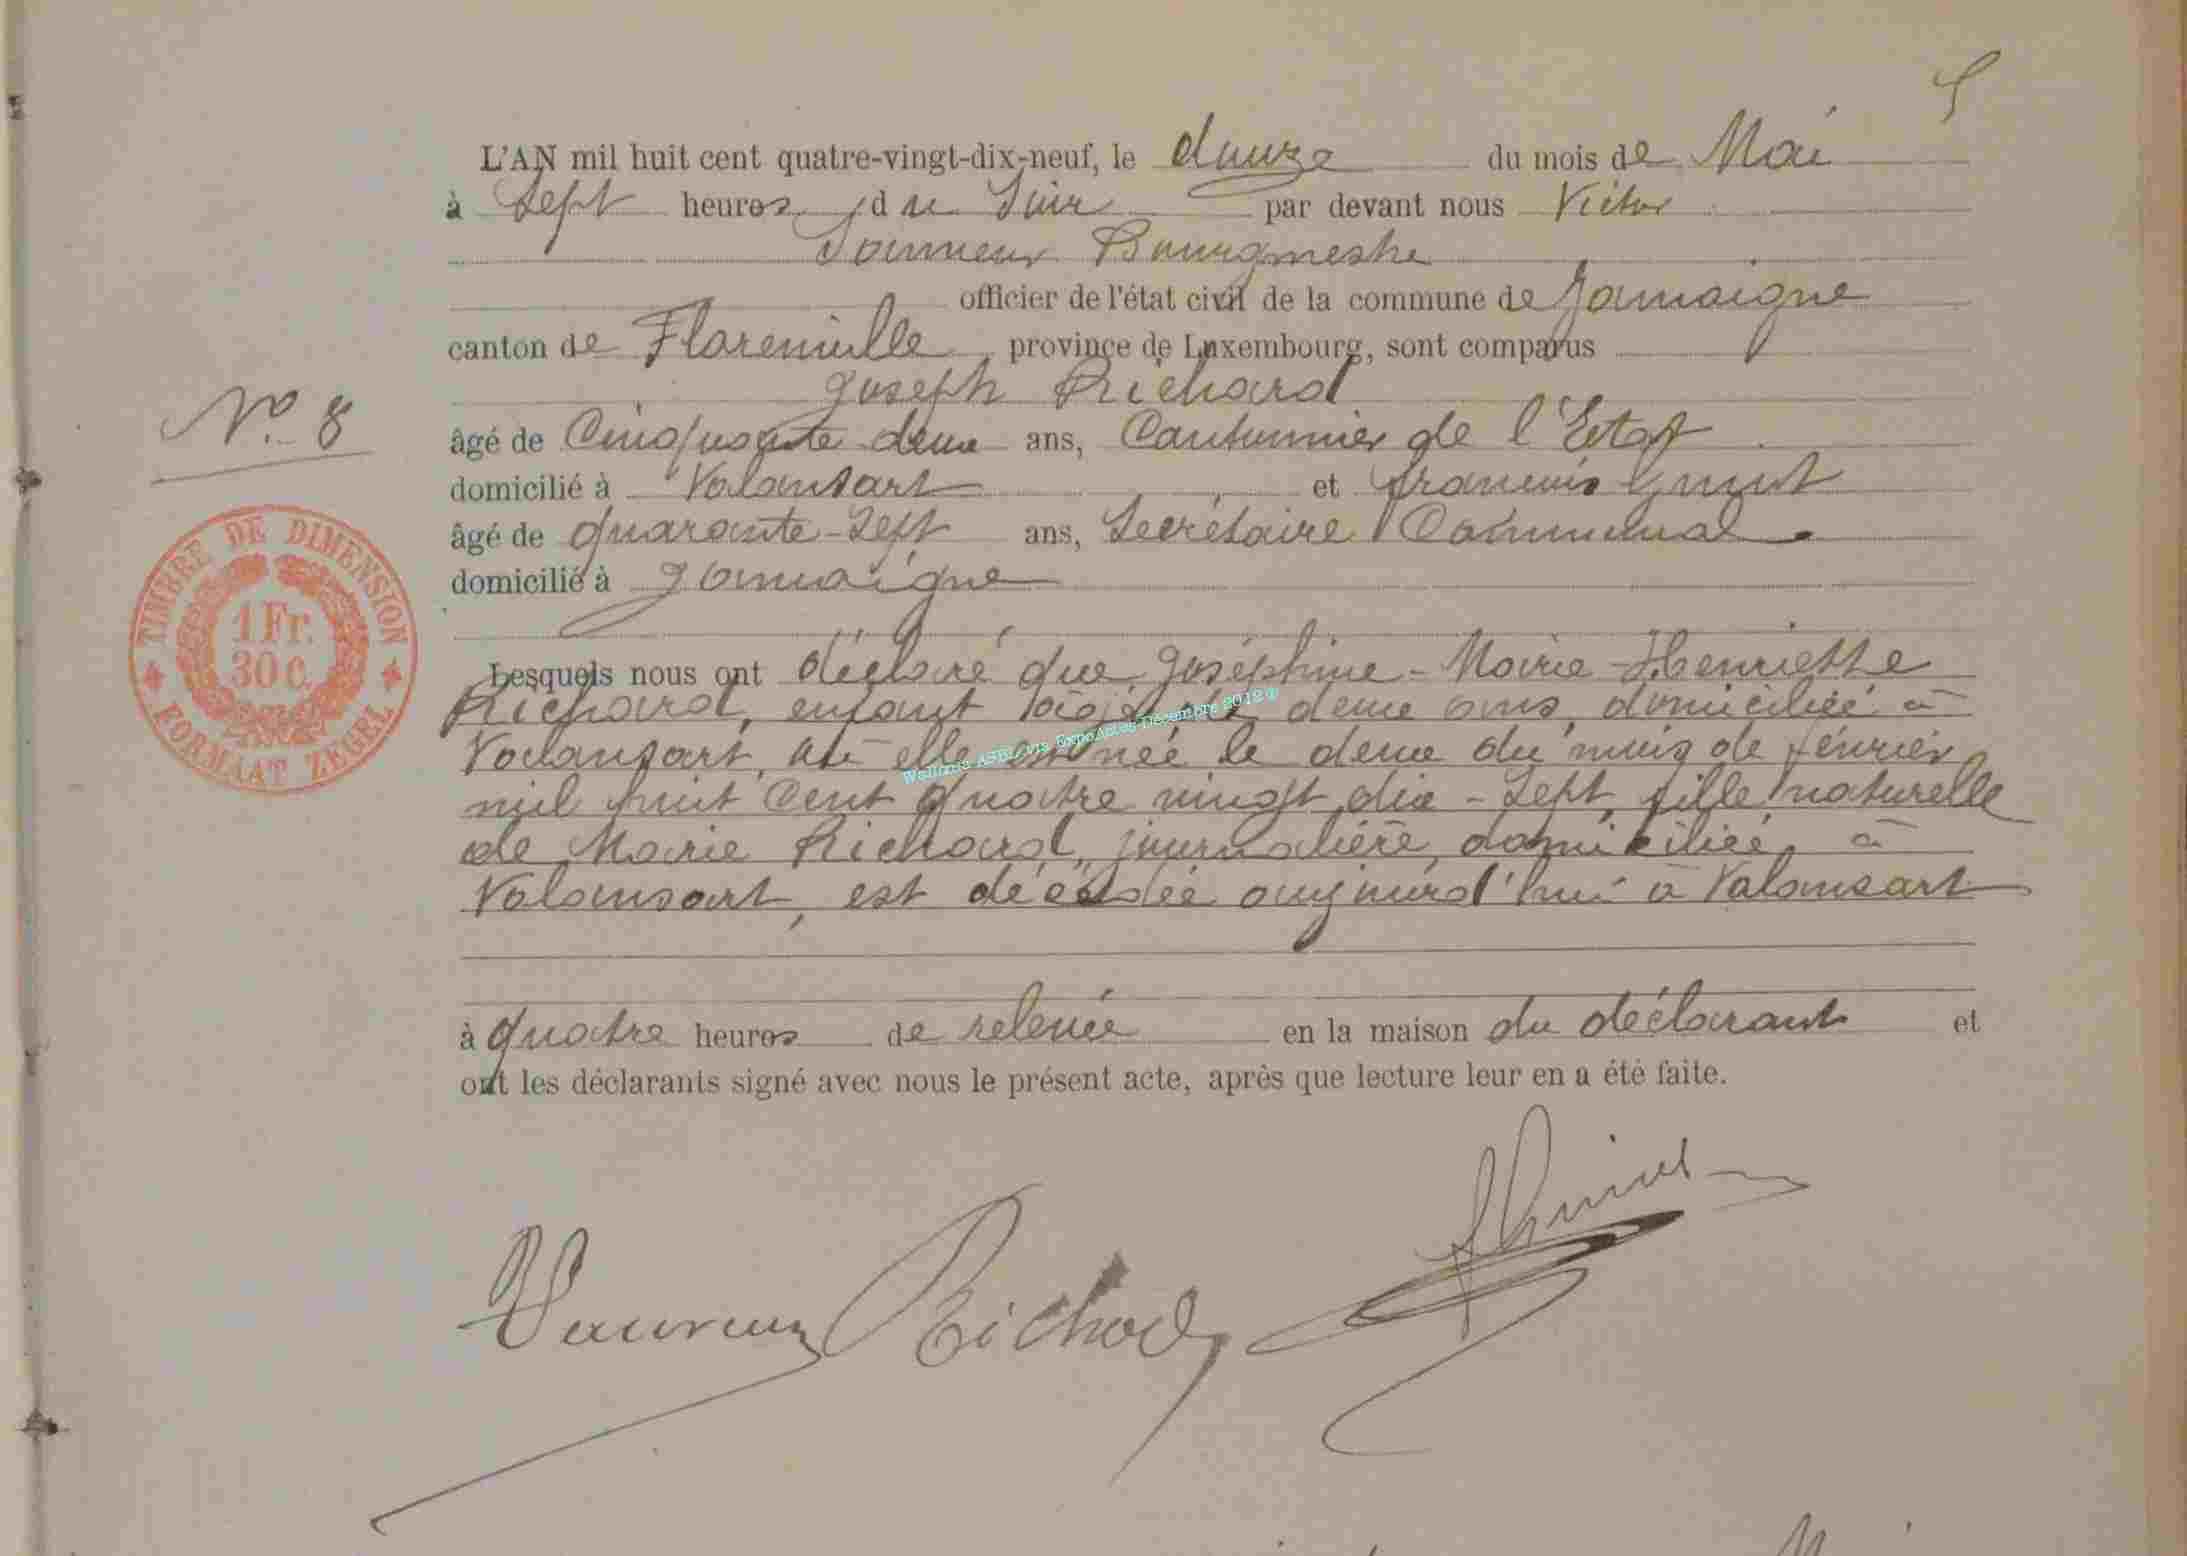 5
L'AN mil huit cent quatre-vingt-dix-neuf, le douze du mois de Mai
à Sept heures du Soir par devant nous Victor
Bourgmestre
officier de l'état civil de la commune de Jamoigne
canton de Florenville province de Luxembourg, sont comparus
Joseph Richard
N° 8
âgé de Cinquante deux ans, Cantonnier de l'Etat
domicilié à Valansart et françois
âgé de quarante-Sept ans, Secrétaire Communal
domicilié à Jamoigne
TIMBRE DE DIMENSION
1 Fr.
30 c.
FORMAAT ZEGEL
Lesquels nous ont déclaré que Joséphine-Marie-Henriette
Richard, enfant âgé de deux ans, domiciliée à
Valansart, où elle est née le deux du mois de février
mil huit Cent quatre vingt dix-Sept, fille naturelle
de Marie Richard, journalière, domiciliée à
Valansart, est décédée aujourd'hui à Valansart
Wallonia ASBL via ExpoActes Décembre 2012 ©
à quatre heures de relevée en la maison du déclarant et
ont les déclarants signé avec nous le présent acte, après que lecture leur en a été faite.
Richard